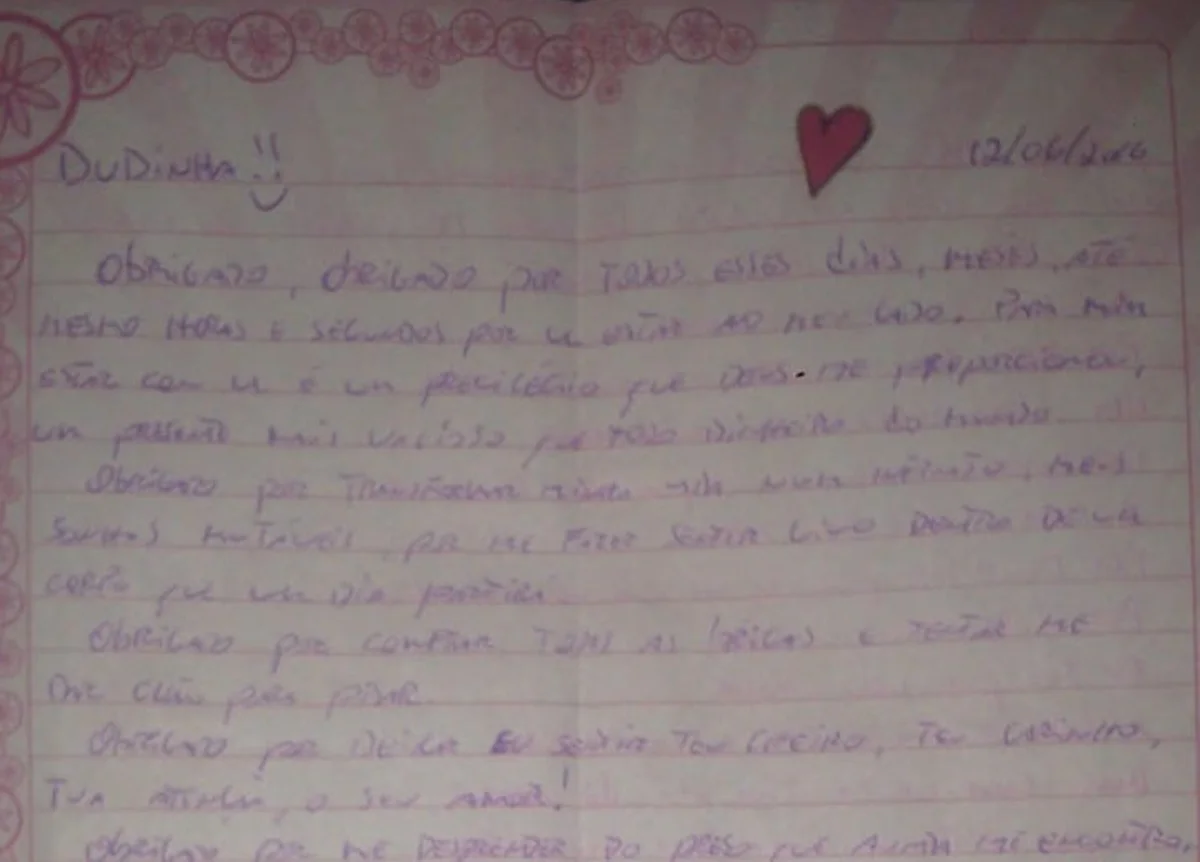 DUDINHA!!
12/06/2016
Obrigado, obrigado por todos esses dias, meses, até
mesmo horas e segundos por vc estar ao meu lado. Para mim
estar com vc é um privilégio que Deus me proporcionou,
um presente mais valioso que todo dinheiro do mundo
Obrigado por transformar minha vida num infinito, meus
sonhos por me fazer sentir vivo dentro de um
corpo que um dia
Obrigado por comprar todas as brigas e tentar me
dar chão para pisar
Obrigado por deixar eu sentir teu cheiro, teu carinho,
tua atenção, o seu amor!
Obrigado por me desprender do peso que ainda me encontro,